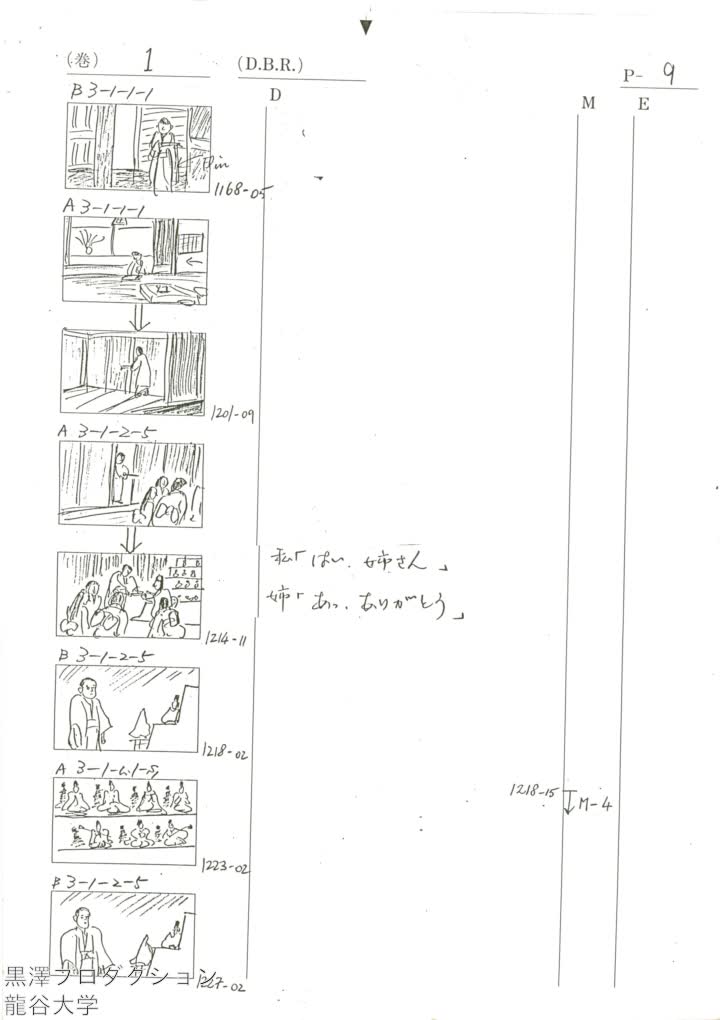 (巻) 1
(D.B.R.)
P- 9
D
M
E
B 3-1-1-1
1168-05
A 3-1-1-1
1201-09
A 3-1-2-5
私「はい、姉さん」
姉「あっ、ありがとう」
1214-11
B 3-1-2-5
1218-02
A 3-1-
1218-15
M-4
1223-02
B 3-1-2-5
1227-02
黒澤プロダクション
龍谷大学